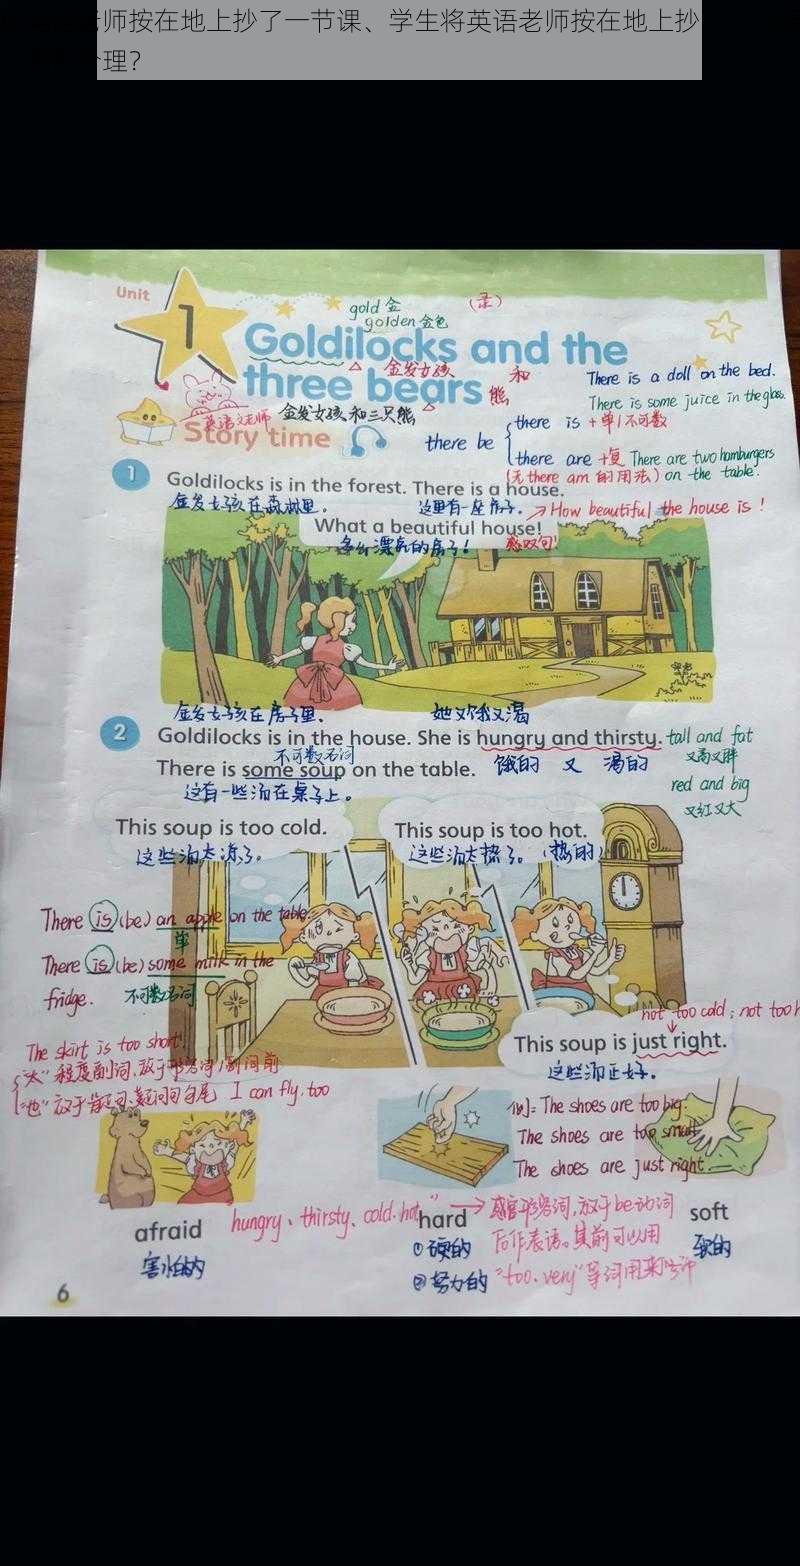 老师按在地上抄了一节课、学生将英语老师按在地上抄
理？
Unit
1
gold 金
golden 金色
Goldilocks and the
three bears
金发女孩
和
熊
There is a doll on the bed.
There is some juice in the glass.
英语老师
金发女孩和三只熊
Story time
there be
there is + 单/不可数
there are +复 There are two hamburgers
(无 there am 的用法) on the table.
1
Goldilocks is in the forest. There is a house.
金发女孩在森林里。
这里有一座房子。
How beautiful the house is!
What a beautiful house!
多么漂亮的房子！
感叹句!
金发女孩在房子里.
她又饿又渴
2
Goldilocks is in the house. She is hungry and thirsty.
tall and fat
又高又胖
不可数名词
There is some soup on the table.
饿的 又 渴的
red and big
又红又大
这有一些汤在桌子上。
This soup is too cold.
这些汤太凉了。
This soup is too hot.
这些汤太热了。(热的)
There is (be) an apple on the table.
单
There is (be) some milk in the
fridge. 不可数名词
not too cold; not too h
This soup is just right.
这些汤正好。
The skirt is too short!
"太" 程度副词,放于形容词/副词前
"也" 放于肯定句、疑问句句尾 I can fly, too
例: The shoes are too big.
The shoes are too small.
The shoes are just right.
afraid
害怕的
hungry、thirsty、cold、hot"
hard
①硬的
②努力的
感官形容词,放于be动词
后作表语。其前可以用
"too、very"等词用来
soft
软的
6